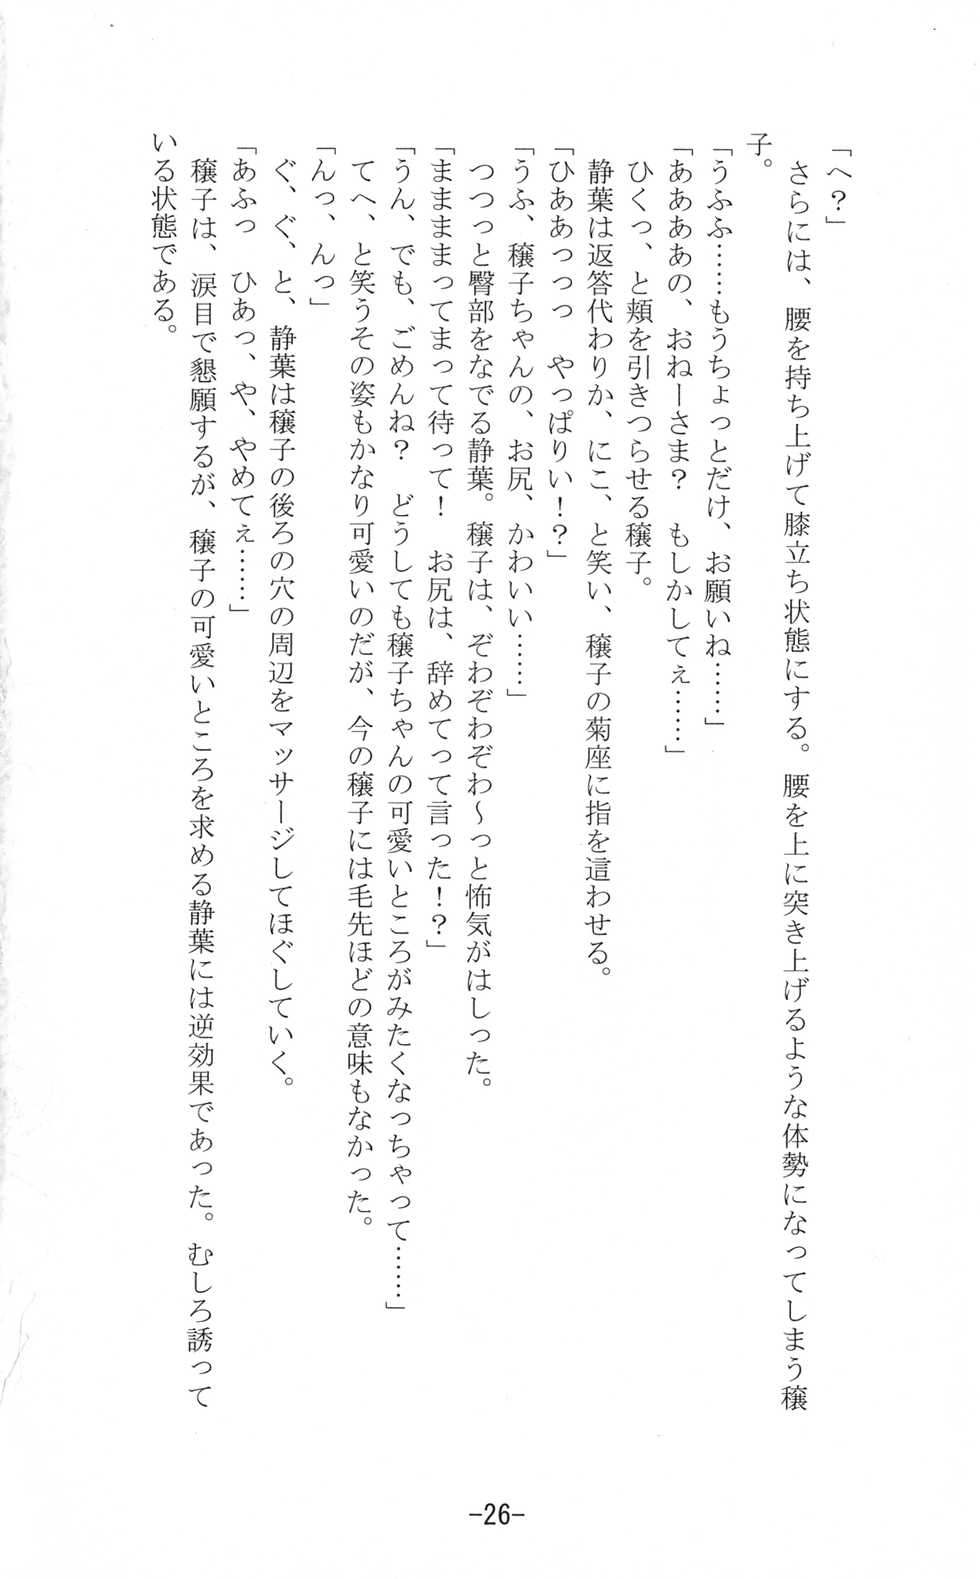 「へ？」
　さらには、腰を持ち上げて膝立ち状態にする。腰を上に突き上げるような体勢になってしまう穣
子。
「うふふ……もうちょっとだけ、お願いね……」
「ああああの、おねーさま？　もしかしてぇ……」
　ひくっ、と頬を引きつらせる穣子。
　静葉は返答代わりか、にこ、と笑い、穣子の菊座に指を這わせる。
「ひああっっっ　やっぱりぃ！？」
「うふ、穣子ちゃんの、お尻、かわいい……」
　つつっと臀部をなでる静葉。穣子は、ぞわぞわぞわ～っと怖気がはしった。
「まままってまって待って！　お尻は、辞めてって言った！？」
「うん、でも、ごめんね？　どうしても穣子ちゃんの可愛いところがみたくなっちゃって……」
　てへ、と笑うその姿もかなり可愛いのだが、今の穣子には毛先ほどの意味もなかった。
「んっ、んっ」
　ぐ、ぐ、と、静葉は穣子の後ろの穴の周辺をマッサージしてほぐしていく。
「あふっ　ひあっ、や、やめてぇ……」
　穣子は、涙目で懇願するが、穣子の可愛いところを求める静葉には逆効果であった。むしろ誘って
いる状態である。
-26-